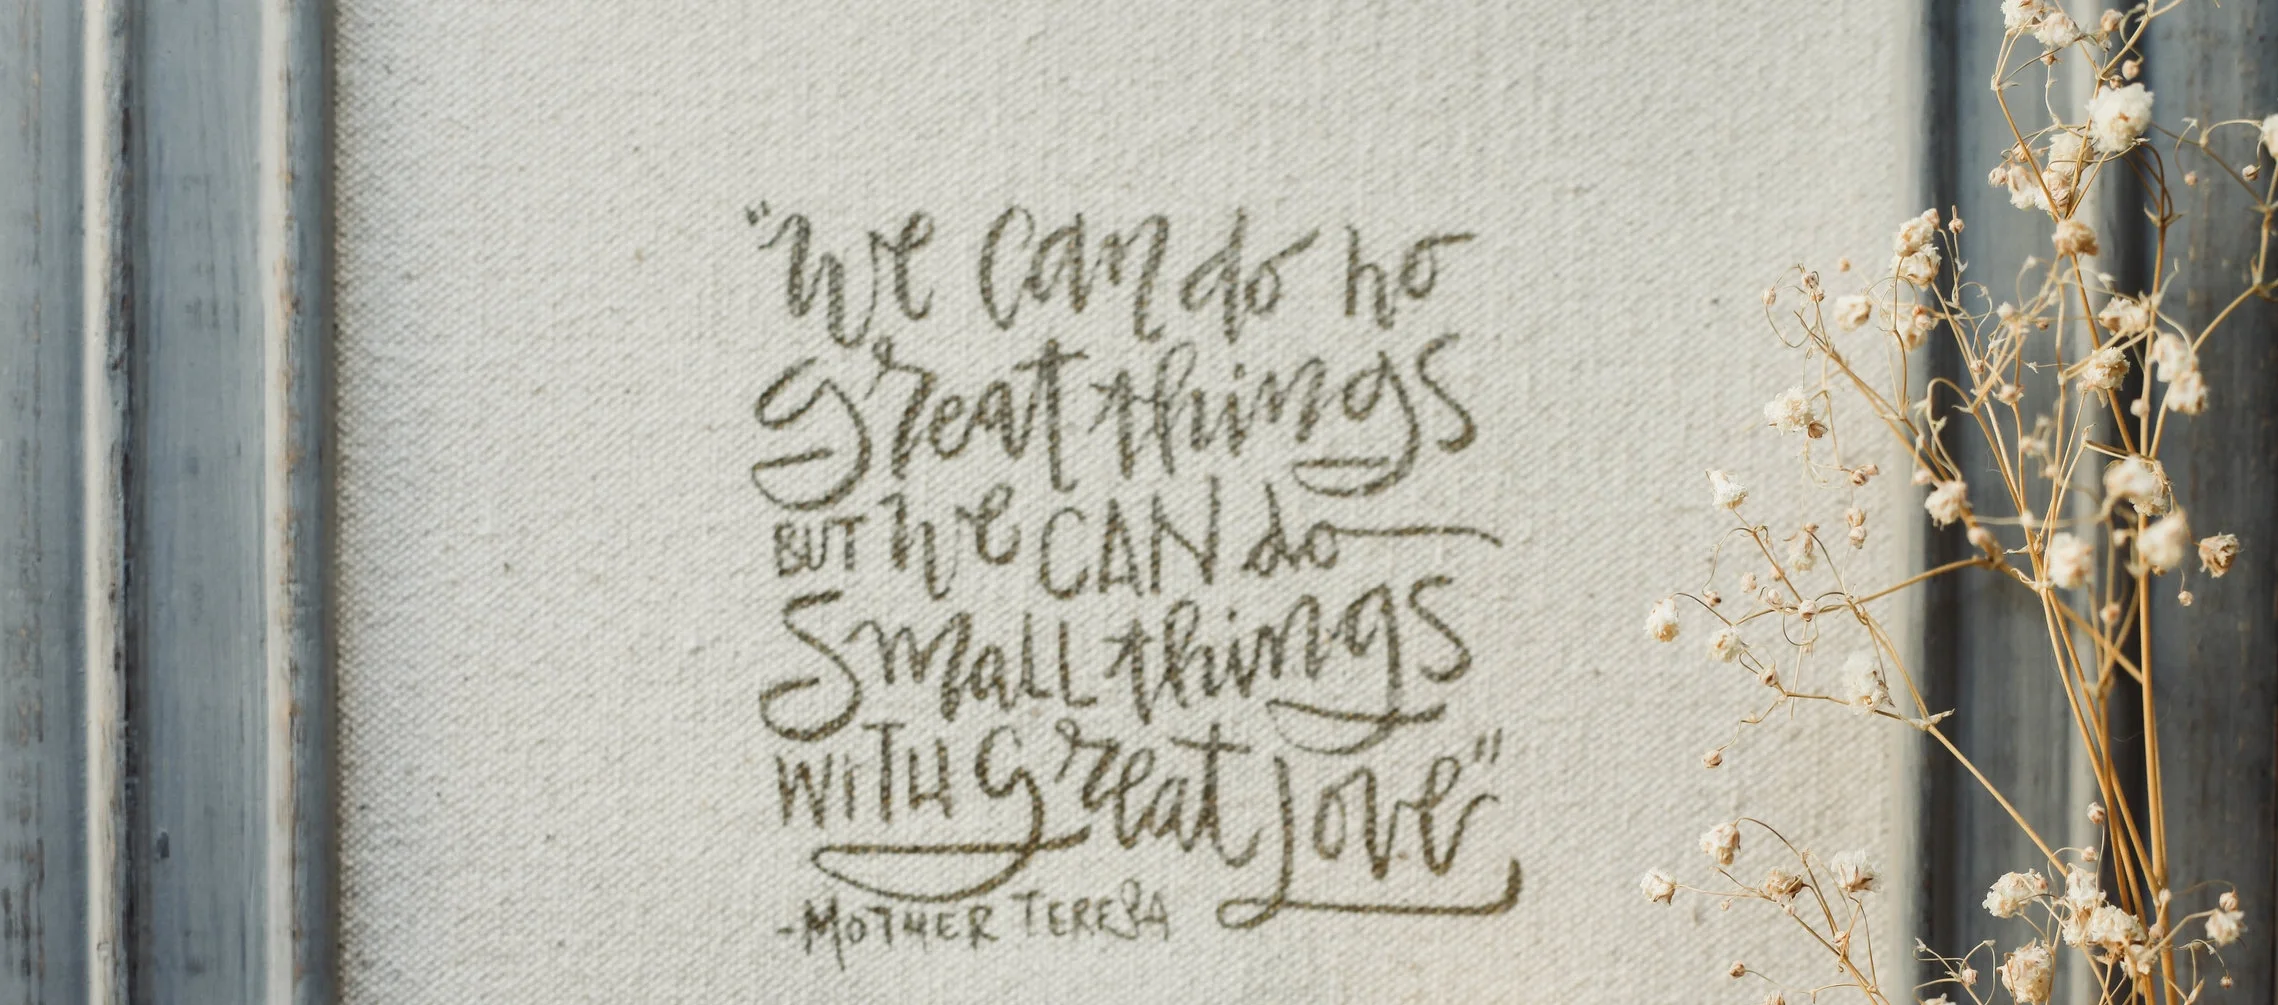 "We can do no
great things
BUT we CAN do
Small things
WITH great Love"
-MOTHER TERESA